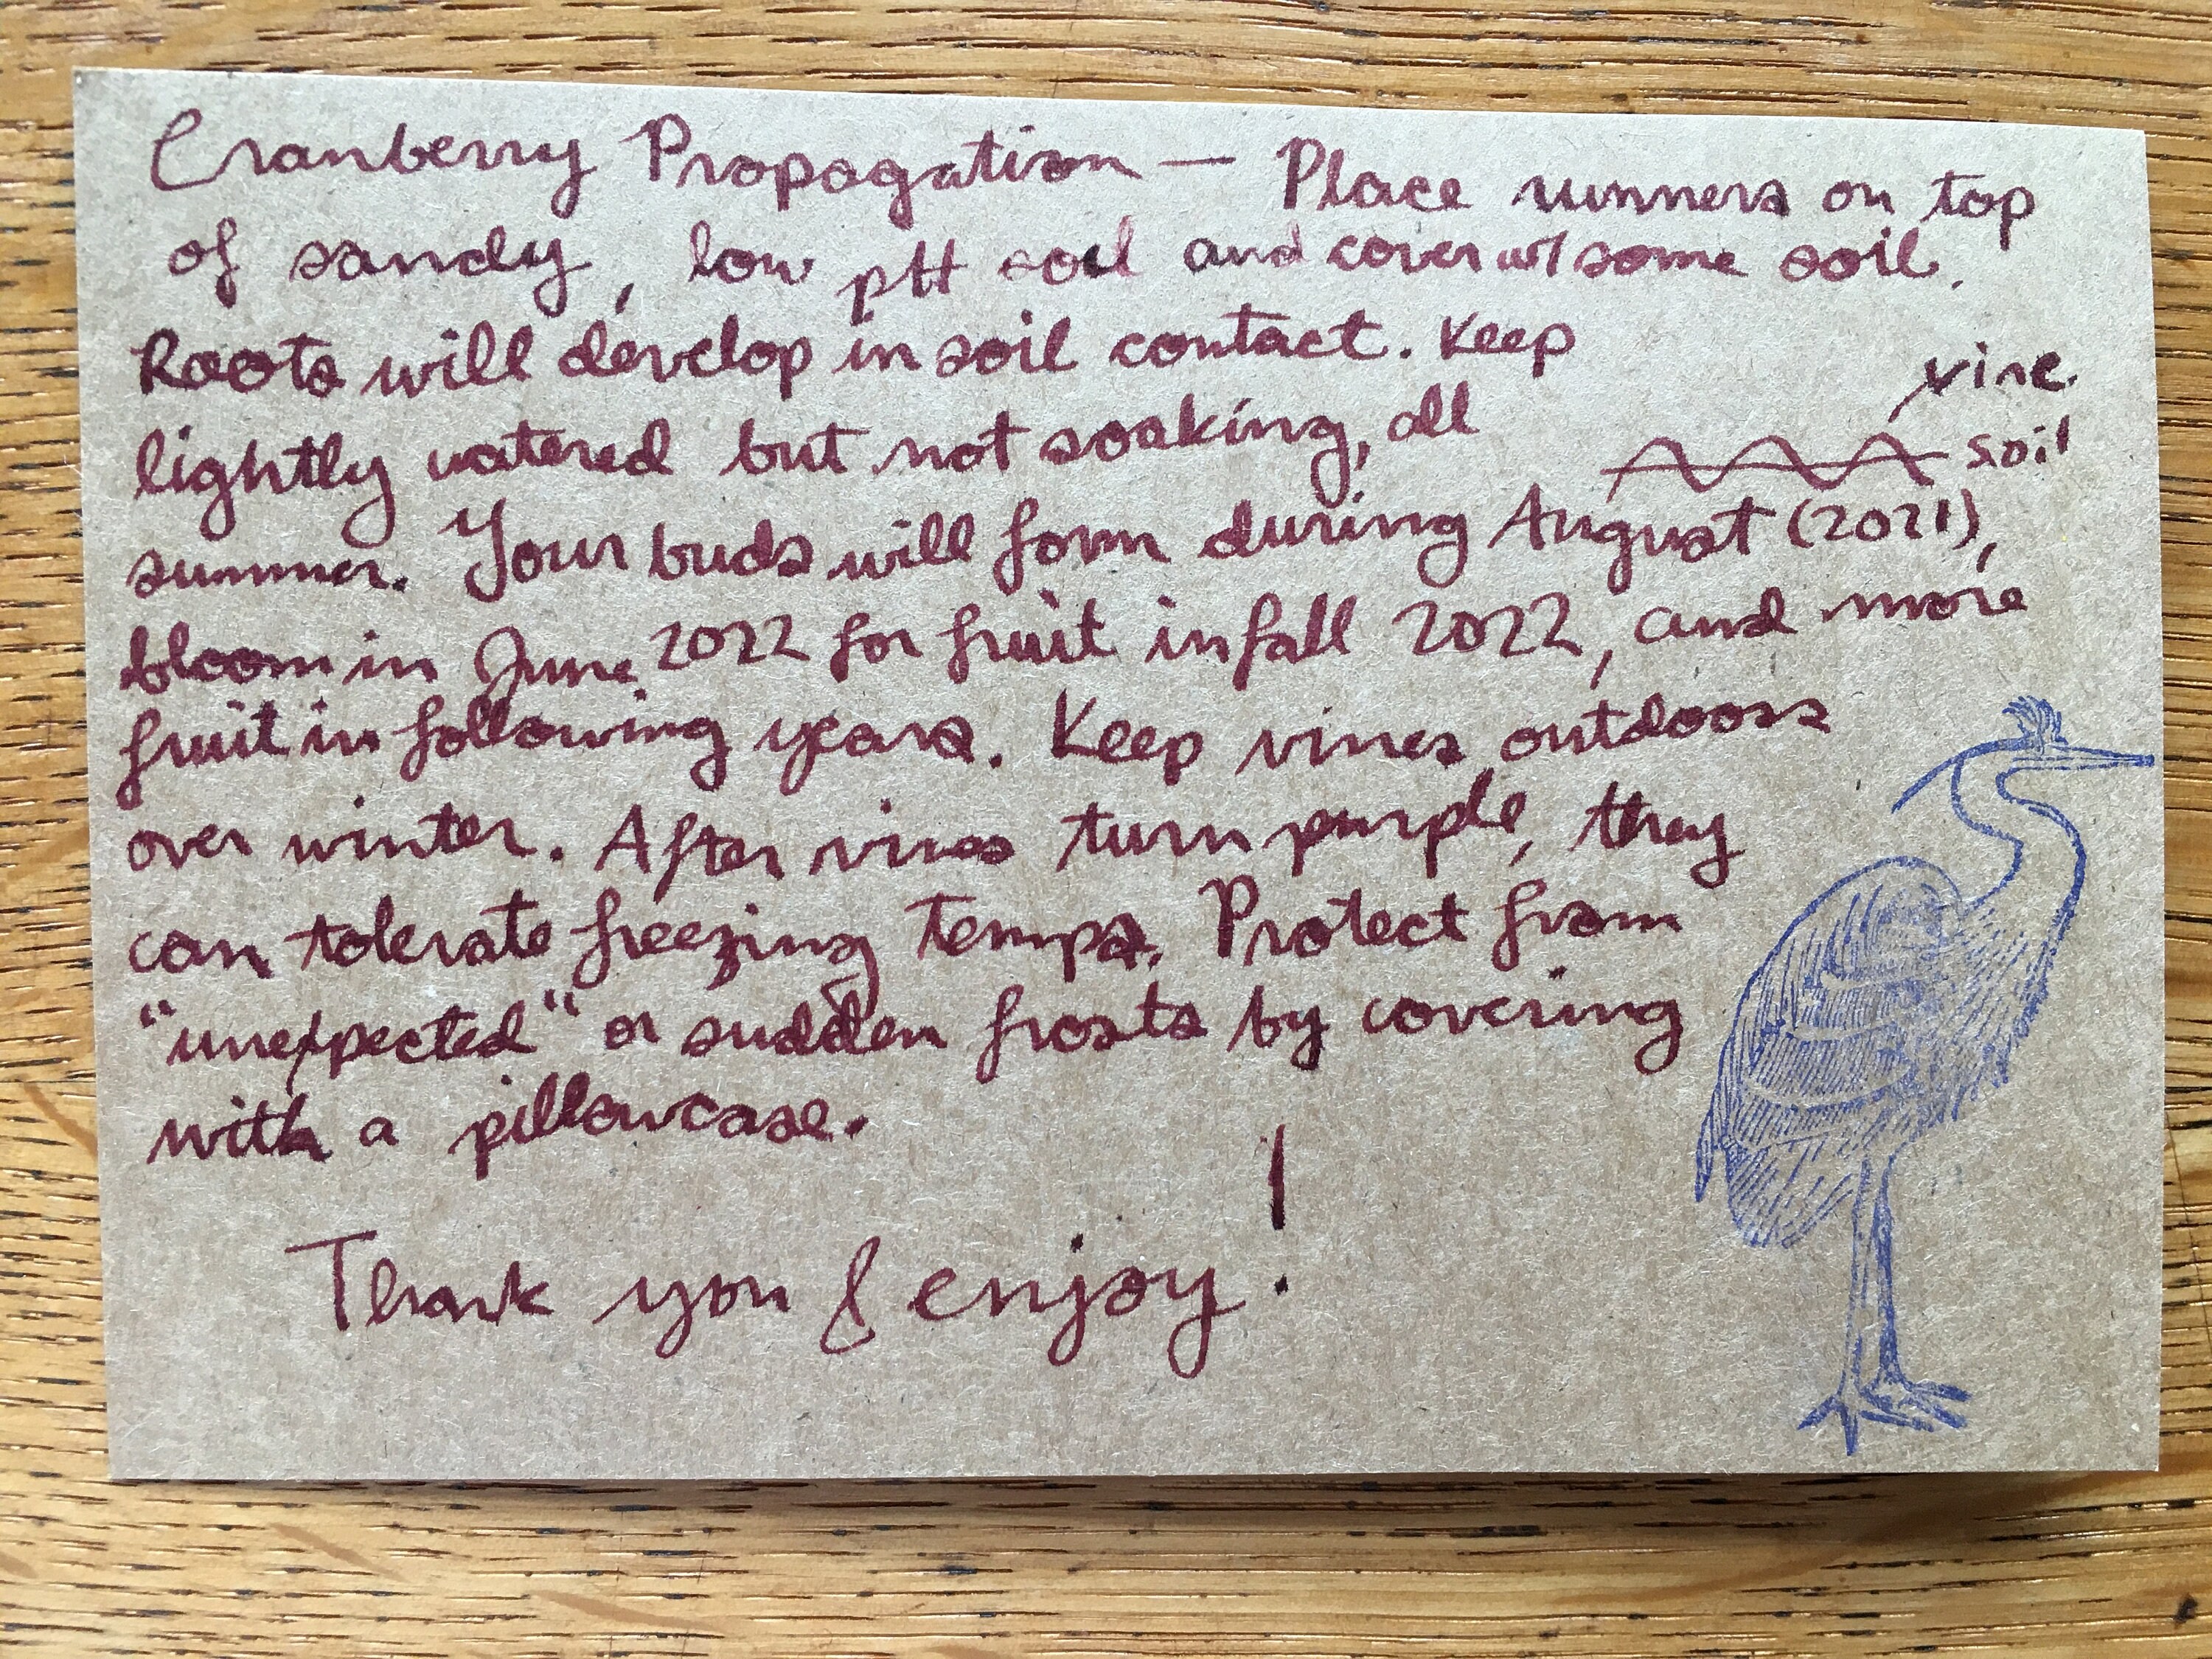 Cranberry Propagation — Place runners on top
of sandy, low pH soil and cover w/ some soil.
Roots will develop in soil contact. Keep
vine
lightly watered but not soaking, all
soil
summer. Your buds will form during August (2021),
bloom in June 2022 for fruit in fall 2022, and more
fruit in following years. Keep vines outdoors
over winter. After vines turn purple, they
can tolerate freezing temps. Protect from
"unexpected" or sudden frosts by covering
with a pillowcase.
Thank you & enjoy!